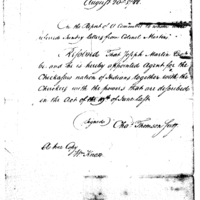 August 20th 1788.
On the Report of a Committee to whom
referred sundry letters from Colonel Martin
Resolved That Joseph Martin
be, and he is hereby appointed agent for the
Chickasaw nation of Indians together with the
Cherokees with the powers that are described
in the Act of the 19th of June last.
(signed) Chas Thomson Secy
A true Copy
Wm Knox